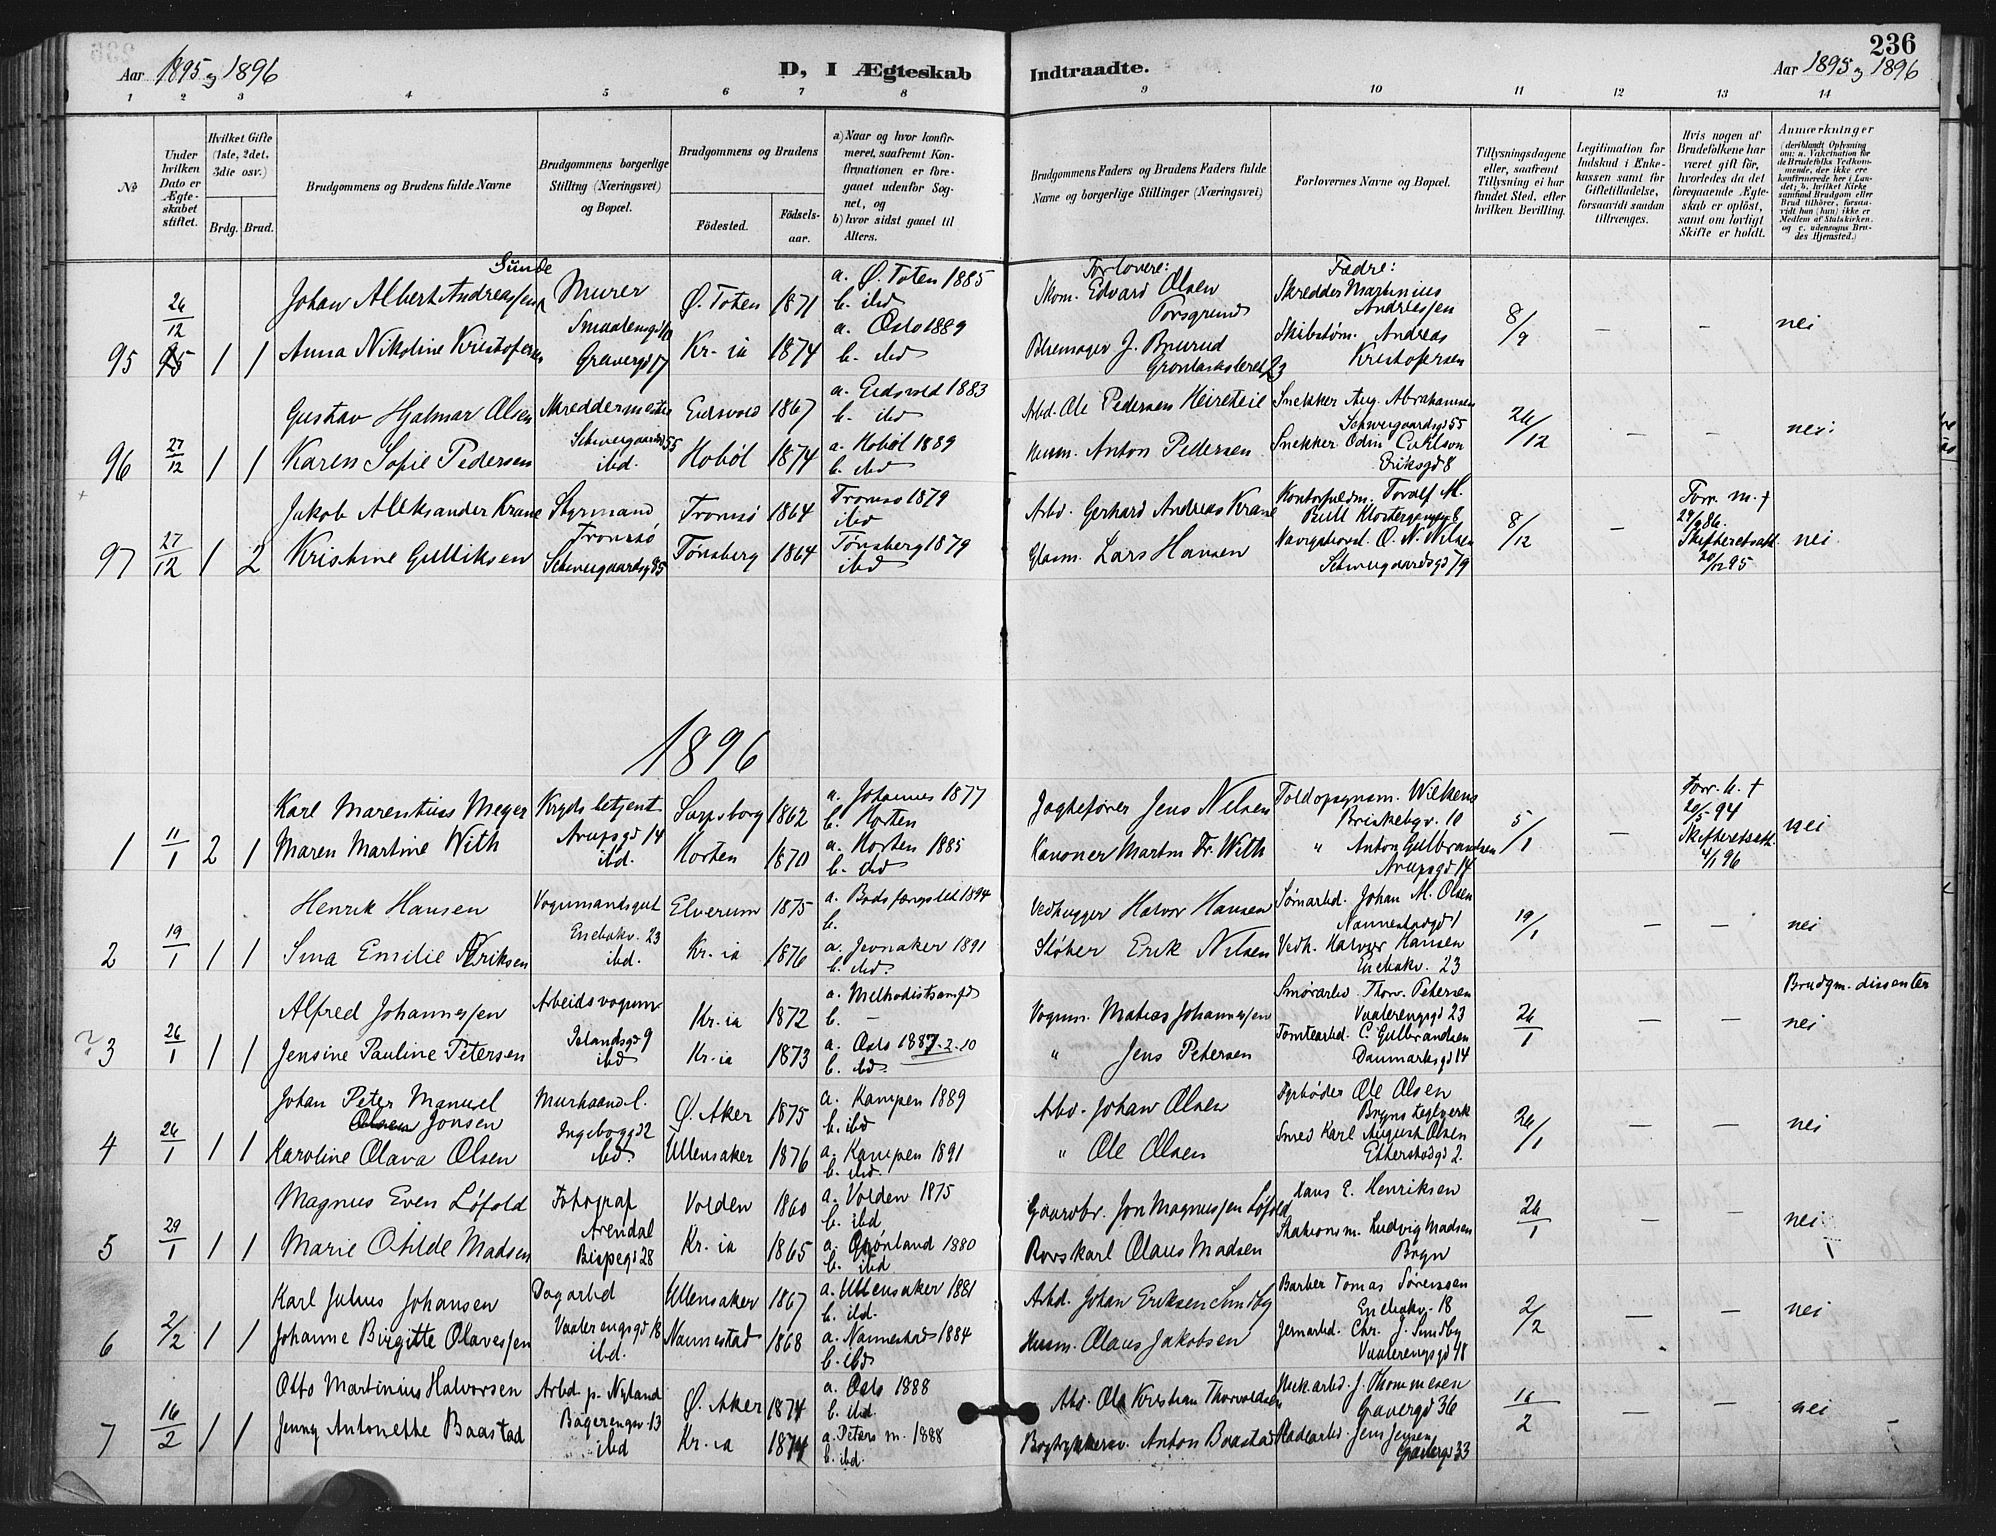 236
Aar 1895 og 1896
D, I Ægteskab Indtraadte.
Aar 1895 og 1896
1 2 3 4 5 6 7 8 9 10 11 12 13 14
No
Under hvilken Dato er Ægteskabet stiftet.
Hvilket Gifte (1ste, 2det, 3die osv.)
Brdg. Brud.
Brudgommens og Brudens fulde Navne
Brudgommens borgerlige Stilling (Næringsvei) og Bopæl.
Brudgommens og Brudens
Födested.
Födsels-aar.
a) Naar og hvor konfirmeret, saafremt Konfirmationen er foregaaet udenfor Sognet, og
b) hvor sidst gaaet til Alters.
Brudgommens Faders og Brudens Faders fulde Navne og borgerlige Stillinger (Næringsvei)
Forlovernes Navne og Bopæl.
Tillysningsdagene eller, saafremt Tillysning ei har fundet Sted, efter hvilken Bevilling.
Legitimation for Indskud i Enkekassen samt for Giftetilladelse, forsaavidt saadan tiltrænges.
Hvis nogen af Brudefolkene har været gift för, hvorledes da det foregaaende Ægteskab er oplöst, samt om lovligt Skifte er holdt.
Anmærkninger (deriblandt Oplysning om: a. Vakcination for de Brudefolks Vedkommende, der ikke ere konfirmerede her i Landet; b. hvilket Kirkesamfund Brudgom eller Brud tilhörer, forsaavidt han (hun) ikke er Medlem af Statskirken. og c. udensogns Brudes Hjemsted.)
Forlovere: Fædre:
Sunde
Johan Albert Andreassen Murer Ø. Toten 1871 a. Ø. Toten 1885 b. ibd Skom. Edvard Olsen Porsgrund Skredder Martinius Andreassen
95 26/12 95 1 1 Anna Nikoline Kristofersen Smaalensgd 10 Gravergd 17 Kr-ia 1874 a. Oslo 1889 b. ibd J. Bjurud Grønlandsleret 23 Skibstøm. Andreas Kristofersen 8/9 – – nei
Gustav Hjalmar Olsen Skreddermester Eidsvold 1867 a. Eidsvold 1883 b. ibd Arbd. Ole Pedersen Snekker Aug. Abrahamsen Schweigaardsgd 55
96 27/12 1 1 Karen Sofie Pedersen Schweigaardsgd 55 ibd. Hobøl 1874 a. Hobøl 1889 b. ibd Husm. Anton Pedersen Snekker Odin Eriksgd 8 26/12 – – nei
Jakob Aleksander Krane Styrmand Tromsø Tromsø 1864 Tromsø 1879 ibd Arbd. Gerhard Andreas Krane Kontorfuldm. Toralf M. Bull
97 27/12 1 2 Kristine Gulliksen Schweigaardsgd 95 Tønsberg 1864 Tønsberg 1879 ibd Lars Hansen O. N. Nilsen Schweigaardsgd 79 8/12 – Forr. m. † Skifteretsatt. 20/12 95 nei
1896
Karl Marentius Meyer 14 Sarpsborg 1862 a. Johannes 1877 b. Horten Jens Nilsen Toldopsynsm. Wilkens Briskebyv. 10
1 11/1 2 1 Maren Martine With Arupsgd 14 ibd. Horten 1870 a. Horten 1885 b. ibd Kanoner Martin Fr. With " Anton Gulbrandsen Arupsgd 14 5/1 – Forr. h. † 20/5 94 Skifteretsatt. 4/1 96 nei
Henrik Hansen Vognmandsgut Elverum 1875 a. Bodsfængslet 1894 b. Vedhugger Halvor Hansen Johan M. Olsen Nannestadgd 1
2 19/1 1 1 Sina Emilie Eriksen Enebakv. 23 ibd. Kr-ia 1876 a. Jevnaker 1891 b. ibd. Støber Erik Nilsen Vedh. Halvor Hansen Enebakv. 23 19/1 – – nei
Alfred Johannessen Arbeidsvognm. Kr-ia 1872 a. Methodistsamfd b. – Vognm. Matias Johannessen Thorv. Petersen Vaalerengsgd 23 Brudgm. dissenter
? 3 26/1 1 1 Jensine Pauline Petersen Islandsgd 9 ibd Kr-ia 1873 a. Oslo 1887 b. ibd. " Jens Petersen Tomtearbd. C. Gulbrandsen Danmarksgd 14 26/1 – – nei
Johan Peter Manuel Olsen Jonsen Murhaandl. Ø. Aker 1875 a. Kampen 1889 b. ibd Arbd. Johan Olsen Fyrbøder Ole Olsen Bryns teglverk
4 26/1 1 1 Karoline Olava Olsen Ingeborggd 2 ibd. Ullensaker 1876 a. Kampen 1891 b. ibd. " Ole Olsen Smed Karl August Olsen Etterstadgd 2. 26/1 – – nei
Magnus Even Løfold Fotograf Arendal Volden 1860 a. Volden 1875 b. ibd Gaardbr. Jon Magnussen Løfold Hans E. Henriksen
5 29/1 1 1 Marie Otilde Madsen Bispegd 28 Kr-ia 1865 a. Grønland 1880 b. ibd Rorskarl Olaus Madsen Stationsm. Ludvig Madsen Bryn 26/1 – – nei
Karl Julius Johansen Dagarbd Ullensaker 1867 a. Ullensaker 1881 b. ibd. Arbd. Johan Eriksen Sundby Barber Tomas Sørenssen Enebakv. 18
6 2/2 1 1 Johanne Birgitte Olavessen Vaalerengsgd 18 ibd. Nannestad 1868 a. Nannestad 1884 b. ibd Husm. Olaus Jakobsen Jernarbd. Chr. J. Sundby Vaalerengsgd 48 2/2 – – nei
Otto Martinius Halvorsen Arbd. p. Nyland Ø. Aker 1874 a. Oslo 1888 b. ibd. Arbd. Ole Kristian Thorvaldsen J. Thommesen Gravergd 36
7 16/2 1 1 Jenny Antonette Baastad Bøgerengsv. 13 ibd Kr-ia 1874 a. Peters m. 1888 b. ibd. Anton Baastad Pladearbd. Jens Jensen Gravergd 33 16/2 – – nei